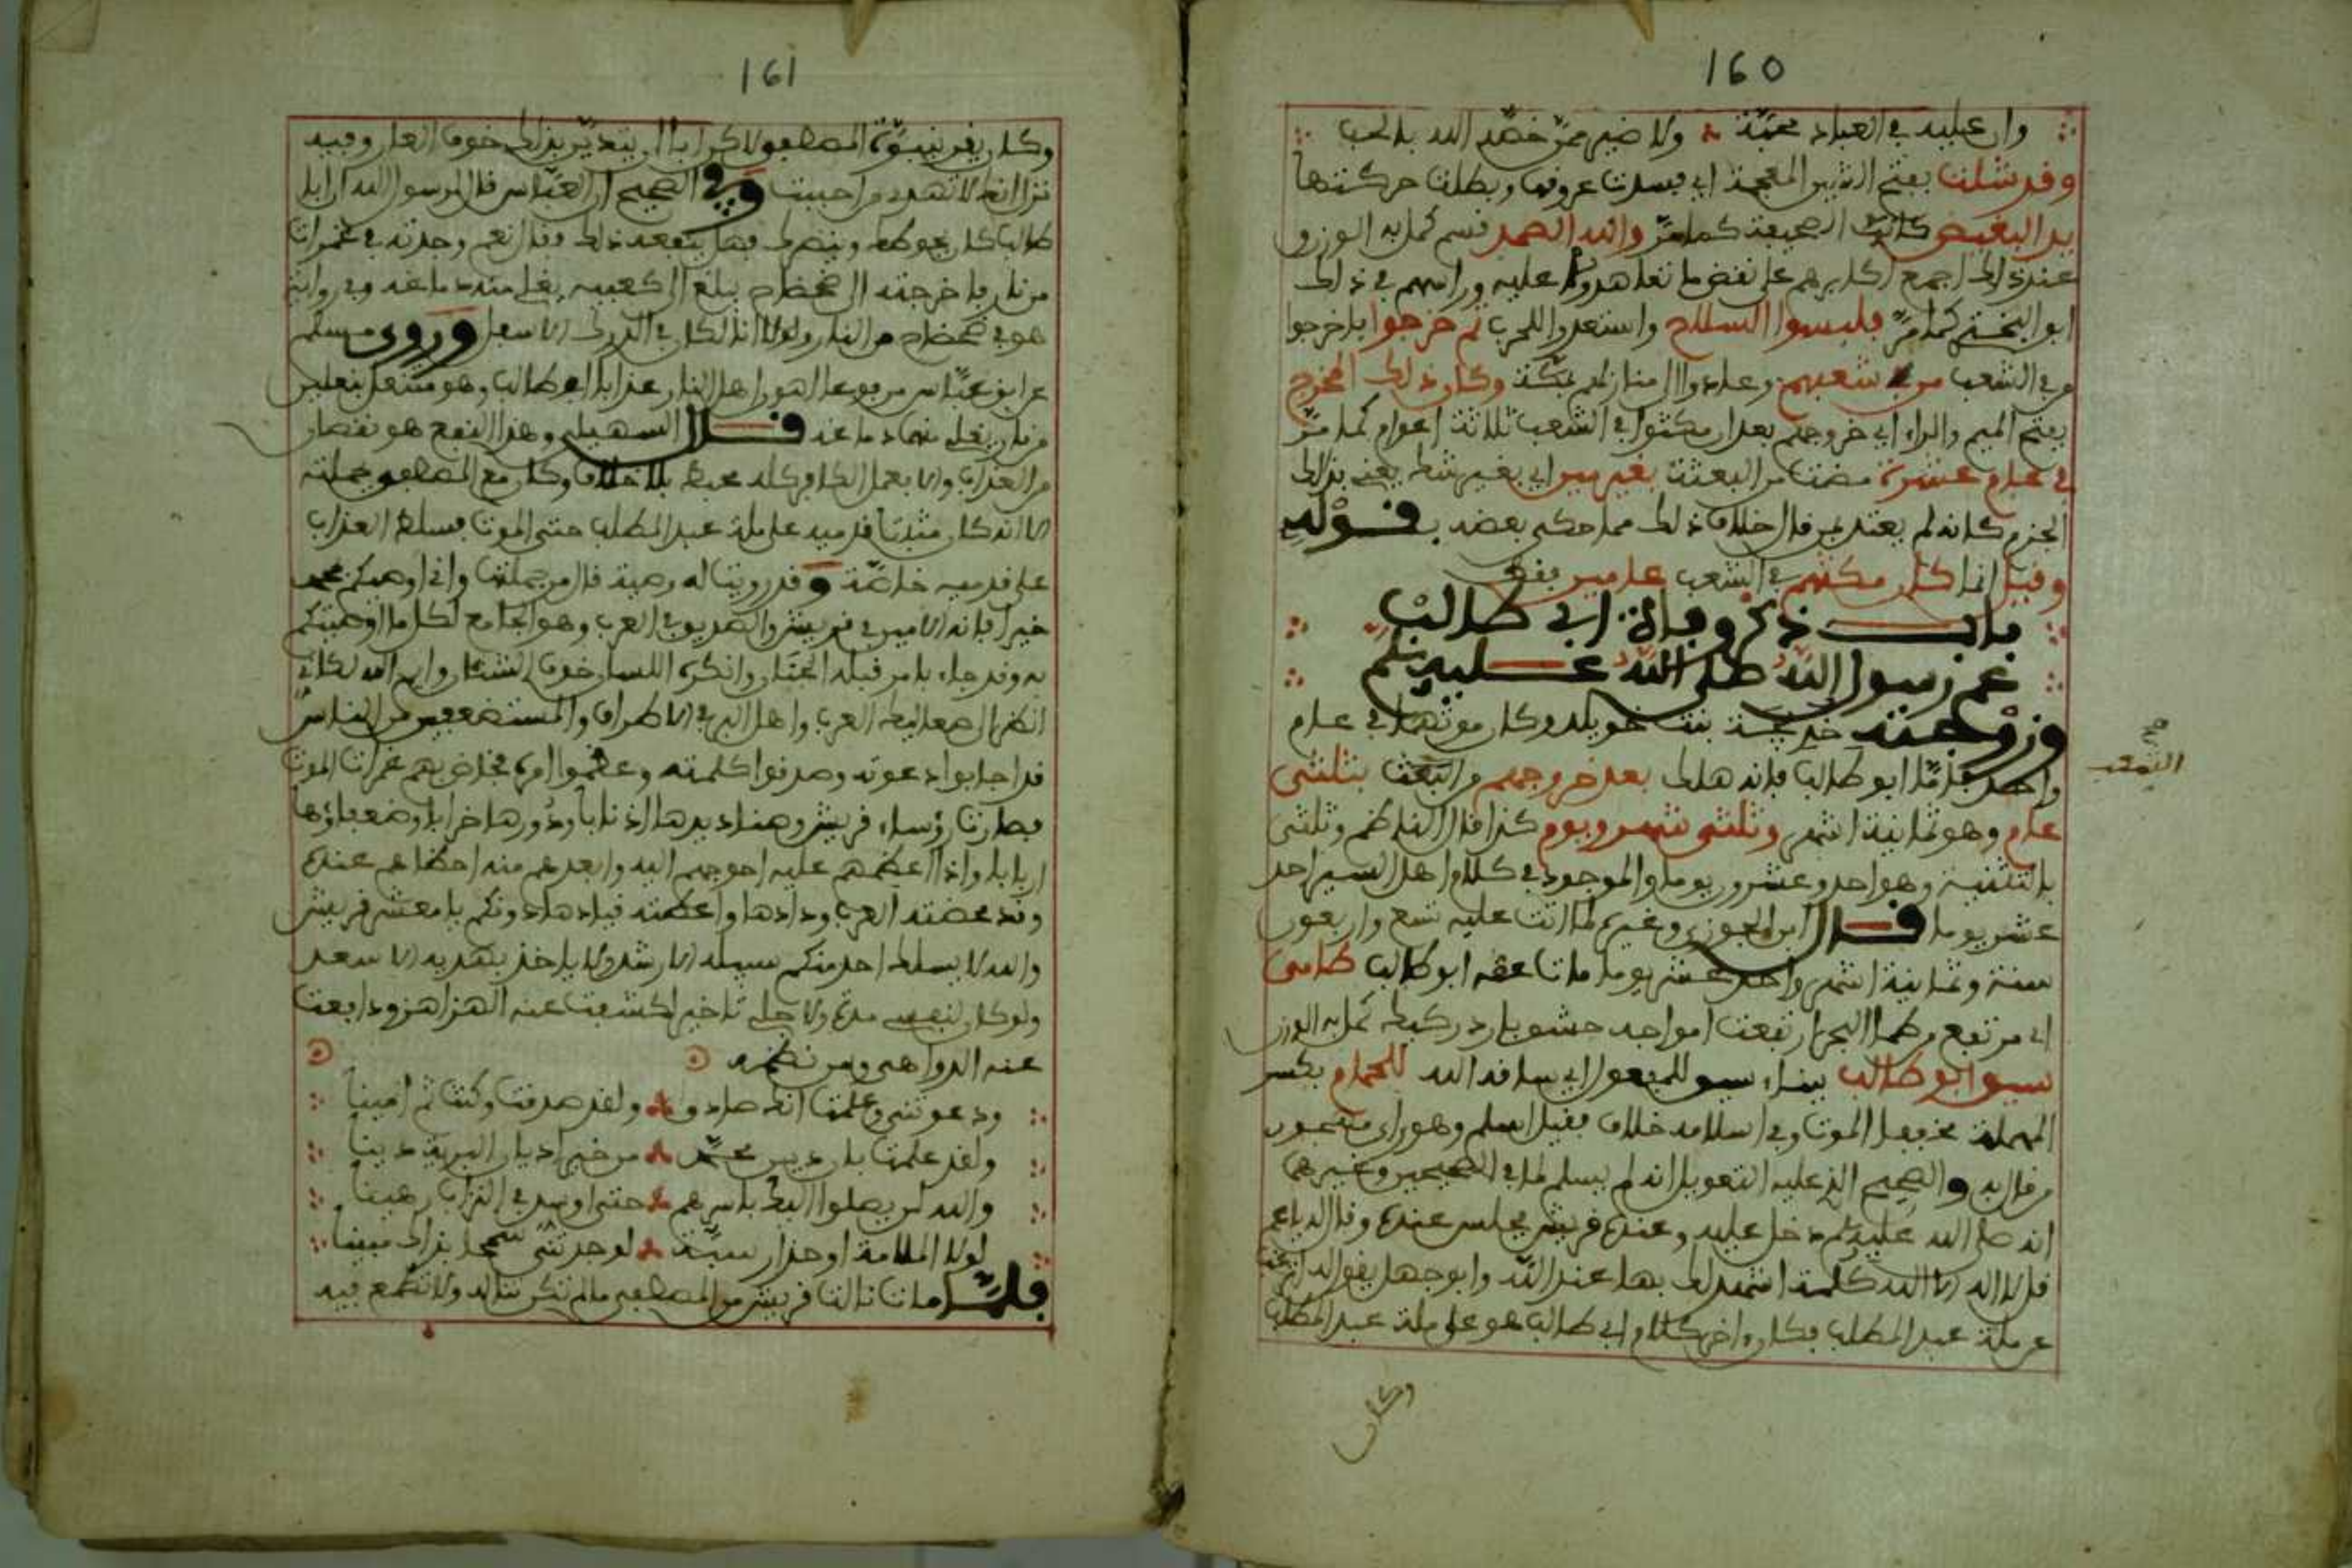 160
وان عليه في العباد محبة ولا ضيم ممن خصه الله بالحب
وقد شلت بفتح الشين المعجمة اي فسدت عروقها وبطلت حركتها
يد البغيض كاتب الصحيفة كما مر والله الصمد قسم كمل به الوزن و
عند ذلك اجمع اكابرهم على نقض ما تعاهدوا عليه وراسهم في ذلك
ابو البختري كما مر فلبسوا السلاح واستعدوا للحرب ثم خرجوا فاخرجوا
من في الشعب من شعبهم وعادوا الى منازلهم بمكة وكان ذلك المخرج
بفتح الميم والراء اي خروجهم بعد ان مكثوا في الشعب ثلاثة اعوام كما مر
في عام عشرة مضت من البعثة بغير مين اي بغير شك يعني بذلك
الجزم كانه لم يعتد بمن قال خلاف ذلك مما حكى بعضه بقوله
وقيل انما كان مكثهم في الشعب عامين فقط
باب ذكر وفاة ابي طالب
عم رسول الله صلى الله عليه وسلم
وزوجته خديجة بنت خويلد وكان موتهما في عام
واحد فاما ابو طالب فانه هلك بعد خروجهم من الشعب بثلثي
عام وهو ثمانية اشهر وثلثي شهر ويوم كذا قال الناظم وثلثي
بالتثنية وهو احد وعشرون يوما والموجود في كلام اهل السير احد
عشر يوما قال ابن الجوزي وغيره لما اتت عليه تسع واربعون
سنة وثمانية اشهر واحد عشر يوما مات عمه ابو طالب طامي
اي مرتفع من طما البحر ارتفعت امواجه حشو بارد ركيك كمل به الوزن
سيق ابو طالب ببناء سيق للمفعول اي ساقه الله للحمام بكسر
المهملة مخففا الموت وفي اسلامه خلاف فقيل اسلم وهو راي
من قال به والصحيح الذي عليه التعويل انه لم يسلم لما في الصحيحين وغيرهما
انه صلى الله عليه وسلم دخل عليه وعنده قريش فجلس عنده وقال له يا عم
قل لا اله الا الله كلمة اشهد لك بها عند الله وابو جهل يقول له اترغب
عن ملة عبد المطلب فكان اخر كلام ابي طالب هو على ملة عبد المطلب
وكان
161
وكان يقر بنبوة المصطفى لاكن ابا ان يتدين بذلك خوف العار وفيه
نزل انك لا تهدي من احببت وفي الصحيح ان العباس قال لرسول الله ان ابا
طالب كان يحوطك وينصرك فهل ينفعه ذلك فقال نعم وجدته في غمرات
من نار فاخرجته الى ضحضاح يبلغ الى كعبيه يغلي منه دماغه وفي رواية
هو في ضحضاح من النار ولولا انا لكان في الدرك الاسفل وروى مسلم
عن ابن عباس مرفوعا اهون اهل النار عذابا ابو طالب وهو منتعل بنعلين
من نار يغلي منهما دماغه قال السهيلي وهذا النفع هو نقصان
من العذاب والا فعمل الكافر كله محبط بلا خلاف وكان مع المصطفى بجملته
الا انه كان مثبتا قدميه على ملة عبد المطلب حتى الموت فسلط العذاب
على قدميه خاصة وقد روينا له وصية قال من جملتها واني اوصيكم بمحمد
خيرا فانه الامين في قريش والصديق في العرب وهو الجامع لكل ما اوصيتكم
به وقد جاء بامر قبله الجنان وانكره اللسان خوف الشنآن وايم الله لكاني
انظر الى صعاليك العرب واهل البر في الاطراف والمستضعفين من الناس
قد اجابوا دعوته وصدقوا كلمته وعظموا امره فخاض بهم غمرات الموت
فصارت رؤساء قريش وصناديدها اذنابا ودورها خرابا وضعفاؤها
اربابا واذا اعظمهم عليه احوجهم اليه وابعدهم منه احظاهم عنده
وقد محضته العرب ودادها واعطته قيادها دونكم يا معشر قريش
والله لا يسلك احد منكم سبيله الا رشد ولا ياخذ بهديه الا سعد
ولو كان لنفسي مدة ولاجلي تاخير لكشفت عنه الهزاهز ودافعت
عنه الدواهي ومن نظمه
ودعوتني وعلمت انك صادق ولقد صدقت وكنت ثم امينا
ولقد علمت بان دين محمد من خير اديان البرية دينا
والله لن يصلوا اليك باسرهم حتى اوسد في التراب رهينا
لولا الملامة او حذار سبة لوجدتني سمحا بذاك مبينا
فلما مات نالت قريش من المصطفى ما لم تكن تناله ولا تطمع فيه